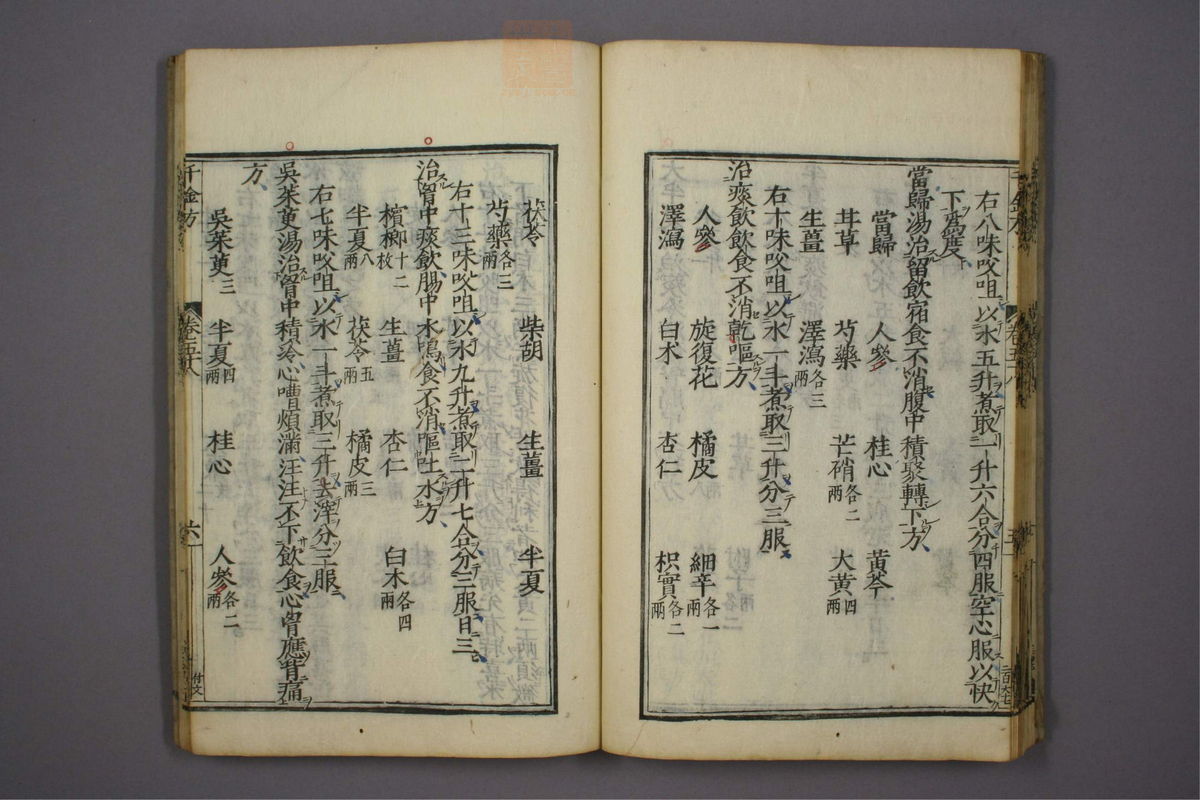 右八味㕮咀以水五升煮取一升六合分四服空心服以快
下爲度
當歸湯治留飲宿食不消腹中積聚轉下方
當歸 人參 桂心 黃芩
甘草 芍藥 芒硝各二兩 大黃四兩
生薑 澤瀉各三兩
右十味㕮咀以水一斗煮取三升分三服
治痰飲飲食不消乾嘔方
人參 旋復花 橘皮 細辛各一兩
澤瀉 白术 杏仁 枳實各二兩
茯苓 柴胡 生薑 半夏
芍藥各三兩
右十三味㕮咀以水九升煮取二升七合分三服日三
治胷中痰飲腸中水鳴食不消嘔吐水方
檳榔十二枚 生薑 杏仁 白术各四兩
半夏八兩 茯苓五兩 橘皮三兩
右七味㕮咀以水一斗煮取三升去滓分三服
吳茱萸湯治胷中積冷心嘈煩滿汪汪不下飲食心胷應背痛
方
吳茱萸三 半夏四兩 桂心 人參各二兩
千金方 卷五十八 六 付文